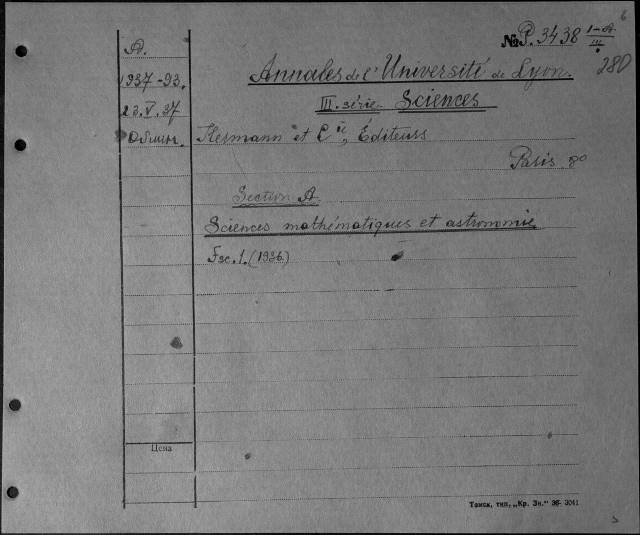 6
№ P. 3438 I-A/III
280
A.
1937-93.
23.V.37
Обмен.
Annales de l'Université de Lyon.
III. série. Sciences
Hermann et Cie, Éditeurs
Paris 8°
Section A.
Sciences mathématiques et astronomie
Fsc. 1. (1936.)
Цена
Томск, тип. „Кр. Зн." 36- 3041